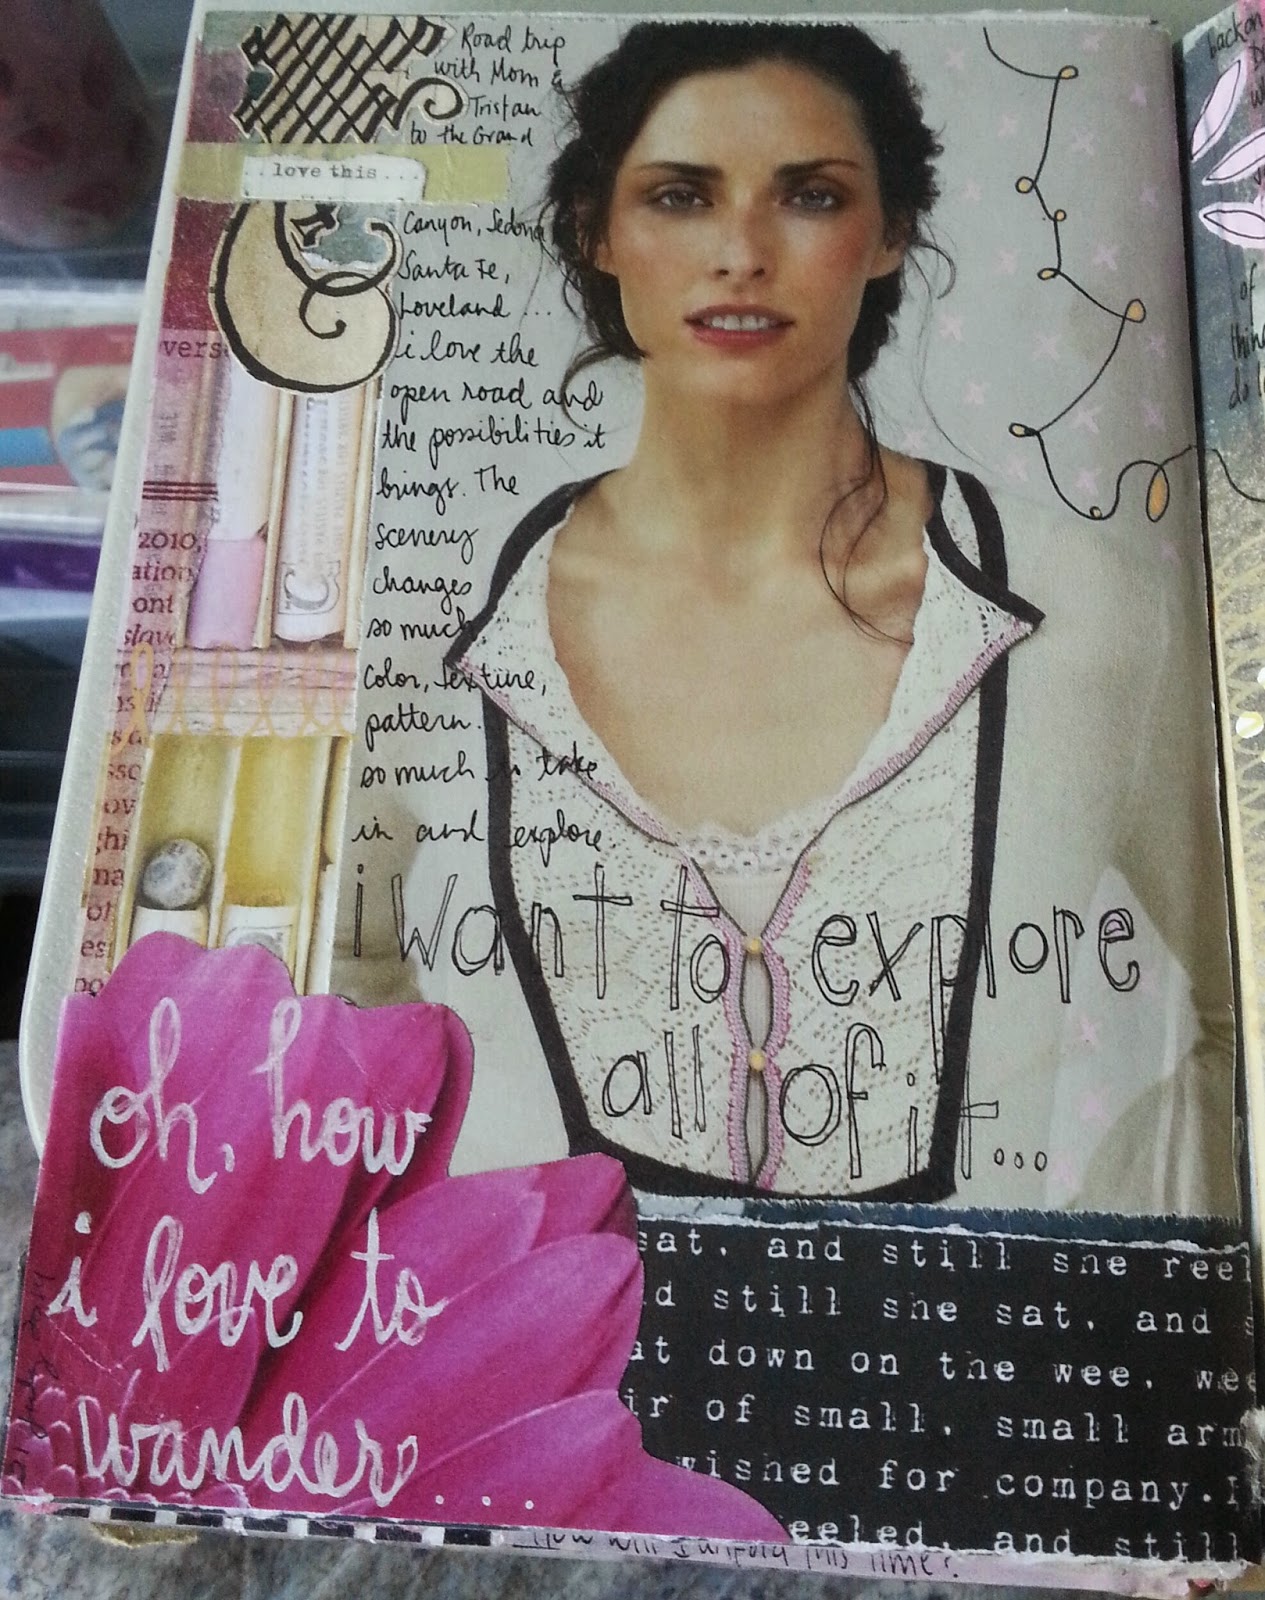 Road trip
with Mom &
Tristan
to the Grand
.. love this ...
Canyon, Sedona
Santa Fe,
Loveland ...
i love the
open road and
the possibilities it
brings. The
scenery
changes
so much.
color, texture,
pattern.
so much to take
in and explore.
i want to explore
all of it...
oh, how
i love to
wander....
31 July 2014
verse
2010,
ation
ont
slave
sat. and still she reel
d still she sat. and s
at down on the wee. wee
ir of small. small arm
wished for company. I
eeled. and still
How will I unfold this time?
backon
of
thin
do